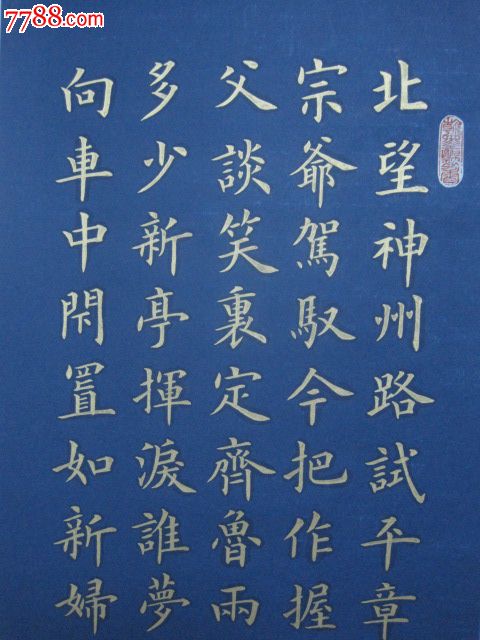 7788.com
北望神州路試平章
宗爺駕馭今把作握
父談笑裏定齊魯兩
多少新亭揮淚誰夢
向車中閑置如新婦